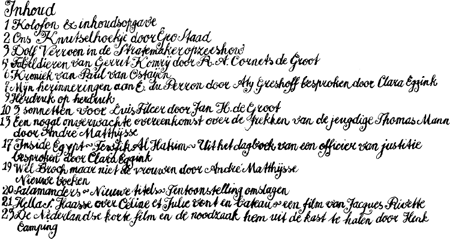 Inhoud
1 Kolofon & inhoudsopgave
2 Ons Knutselhoekje door Geo Staad
3 Dolf Verroen in de Strafemakeropzeeshow
4 Fabeldieren van Gerrit Komrij door R. A. Cornets de Groot
6 Kroniek van Paul van Ostaijen
7 Mijn herinneringen aan E. du Perron door Atty Greshoff besproken door Clara Eggink
9 Herdruk op herdruk
10 3 sonnetten voor Luis Filcer door Jan H. de Groot
13 Een nogal onverwachte overeenkomst over de hekken van de jeugdige Thomas Mann
door André Matthijsse
17 Inside Egypt ~ Tenfik Al Hakim ~ Uit het dagboek van een officier van justitie
besproken door Clara Eggink
19 Wel Broch maar niet de vrouwen door André Matthijsse
Nieuwe boeken
20 Salamanders ~ Nieuwe titels ~ Tentoonstelling omslagen
21 Hella S. Haasse over Céline et Julie vont en bateau ~ een film van Jacques Rivette
23 De Nederlandse korte film en de noodzaak hem uit de kast te halen door Henk
Camping